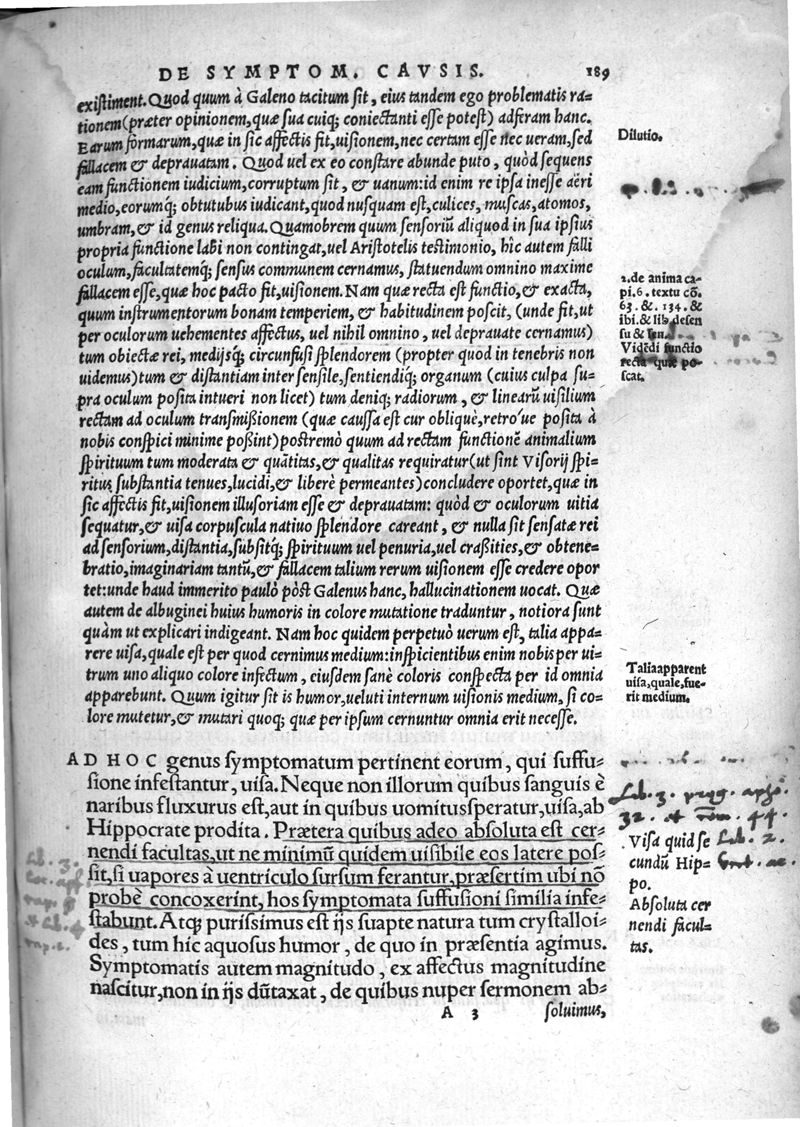 DE SYMPTOM. CAVSIS. 189
existiment. Quod quum à Galeno tacitum sit, eius tandem ego problematis ra-
tionem (præter opinionem, quæ sua cuiq; coniectanti esse potest) adferam hanc.
Earum formarum, quæ in sic affectis fit, uisionem, nec certam esse nec ueram, sed
fallacem & deprauatam. Quod uel ex eo constare abunde puto, quòd sequens
eam functionem iudicium, corruptum sit, & uanum: id enim re ipsa inesse aëri
medio, eorumq; obtutubus iudicant, quod nusquam est, culices, muscas, atomos,
umbram, & id genus reliqua. Quamobrem quum sensoriũ aliquod in sua ipsius
propria functione labi non contingat, uel Aristotelis testimonio, hîc autem falli
oculum, facultatemq; sensus communem cernamus, statuendum omnino maxime
fallacem esse, quæ hoc pacto fit, uisionem. Nam quæ recta est functio, & exacta,
quum instrumentorum bonam temperiem, & habitudinem poscit, (unde fit, ut
per oculorum uehementes affectus, uel nihil omnino, uel deprauate cernamus)
tum obiectæ rei, medijsq; circunfusi splendorem (propter quod in tenebris non
uidemus) tum & distantiam inter sensile, sentiendiq; organum (cuius culpa su-
pra oculum posita intueri non licet) tum deniq; radiorum, & linearũ uisilium
rectam ad oculum transmißionem (quæ caussa est cur obliquè, retro'ue posita à
nobis conspici minime poßint) postremò quum ad rectam functionẽ animalium
spirituum tum moderata & quãtitas, & qualitas requiratur (ut sint Visorij spi-
ritus, substantia tenues, lucidi, & liberè permeantes) concludere oportet, quæ in
sic affectis fit, uisionem illusoriam esse & deprauatam: quòd & oculorum uitia
sequatur, & uisa corpuscula natiuo splendore careant, & nulla sit sensatæ rei
ad sensorium, distantia, subsitq; spirituum uel penuria, uel craßities, & obtene-
bratio, imaginariam tantũ, & fallacem talium rerum uisionem esse credere opor
tet: unde haud immerito paulò pòst Galenus hanc, hallucinationem uocat. Quæ
autem de albuginei huius humoris in colore mutatione traduntur, notiora sunt
quàm ut explicari indigeant. Nam hoc quidem perpetuò uerum est, talia appa-
rere uisa, quale est per quod cernimus medium: inspicientibus enim nobis per ui-
trum uno aliquo colore infectum, eiusdem sanè coloris conspecta per id omnia
apparebunt. Quum igitur sit is humor, ueluti internum uisionis medium, si co-
lore mutetur, & mutari quoq; quæ per ipsum cernuntur omnia erit necesse.
AD HOC genus symptomatum pertinent eorum, qui suffu-
sione infestantur, uisa. Neque non illorum quibus sanguis è
naribus fluxurus est, aut in quibus uomitus speratur, uisa, ab
Hippocrate prodita. Prætera quibus adeo absoluta est cer-
nendi facultas, ut ne minimũ quidem uisibile eos latere pos-
sit, si uapores à uentriculo sursum ferantur, præsertim ubi nõ
probè concoxerint, hos symptomata suffusioni similia infe-
stabunt. Atq; purissimus est ijs suapte natura tum crystalloi-
des, tum hic aquosus humor, de quo in præsentia agimus.
Symptomatis autem magnitudo, ex affectus magnitudine
nascitur, non in ijs dũtaxat, de quibus nuper sermonem ab-
A 3 soluimus,
Dilutio.
2. de anima ca-
pi. 6. textu cõ.
63. &. 134. &
ibi. & lib. de sen
su & sen.
Vidẽdi functio
recta quæ po-
scat.
Talia apparent
uisa, quale, fue-
rit medium.
Lib. 3.
32. et 44.
Visa quid se Lib. 2.
cundũ Hip-
po.
Absoluta cer
nendi facul-
tas.
Lib. 3.